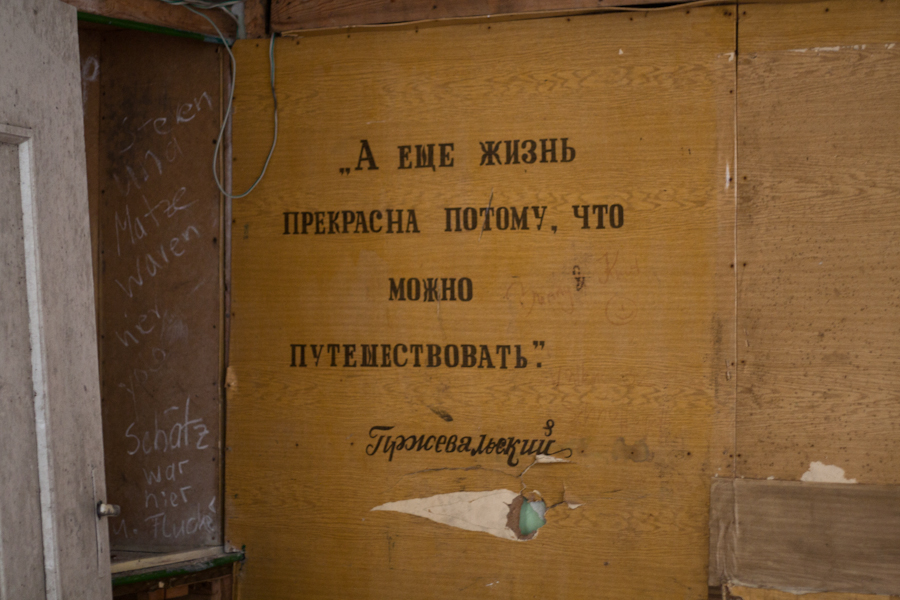 „А ЕЩЕ ЖИЗНЬ
ПРЕКРАСНА ПОТОМУ, ЧТО
МОЖНО
ПУТЕШЕСТВОВАТЬ”.
Пржевальский
Und
Matze
waren
hier
Schätz
war
hier